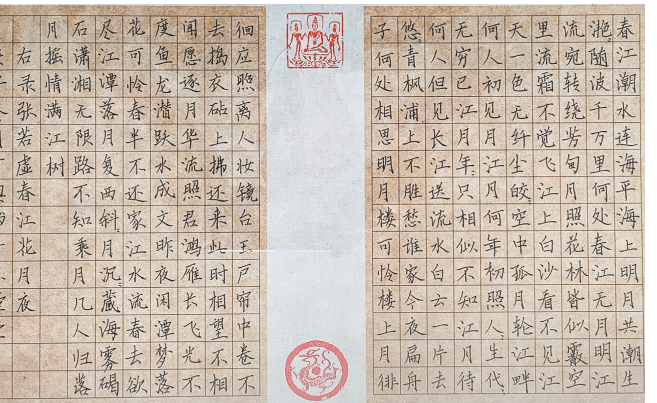 春江潮水连海平海上明月共潮生
滟随波千万里何处春江无月明江
流宛转绕芳甸月照花林皆似霰空
里流霜不觉飞汀上白沙看不见江
天一色无纤尘皎〻空中孤月轮江畔
何人初见月江月何年初照人生代〻
无穷已江月年〻只相似不知江月待
何人但见长江送流水白云一片去
悠青枫浦上不胜愁谁家今夜扁舟
子何处相思明月楼可怜楼上月徘
徊应照离人妆镜台玉户帘中卷不
去捣衣砧上拂还来此时相望不相
闻愿逐月华流照君鸿雁长飞光不
度鱼龙潜跃水成文昨夜闲潭梦落
花可怜春半不还家江水流春去欲
尽江潭落月复西斜〻月沉〻藏海雾碣
石潇湘无限路不知乘月几人归落
月摇情满江树
右录张若虚春江花月夜